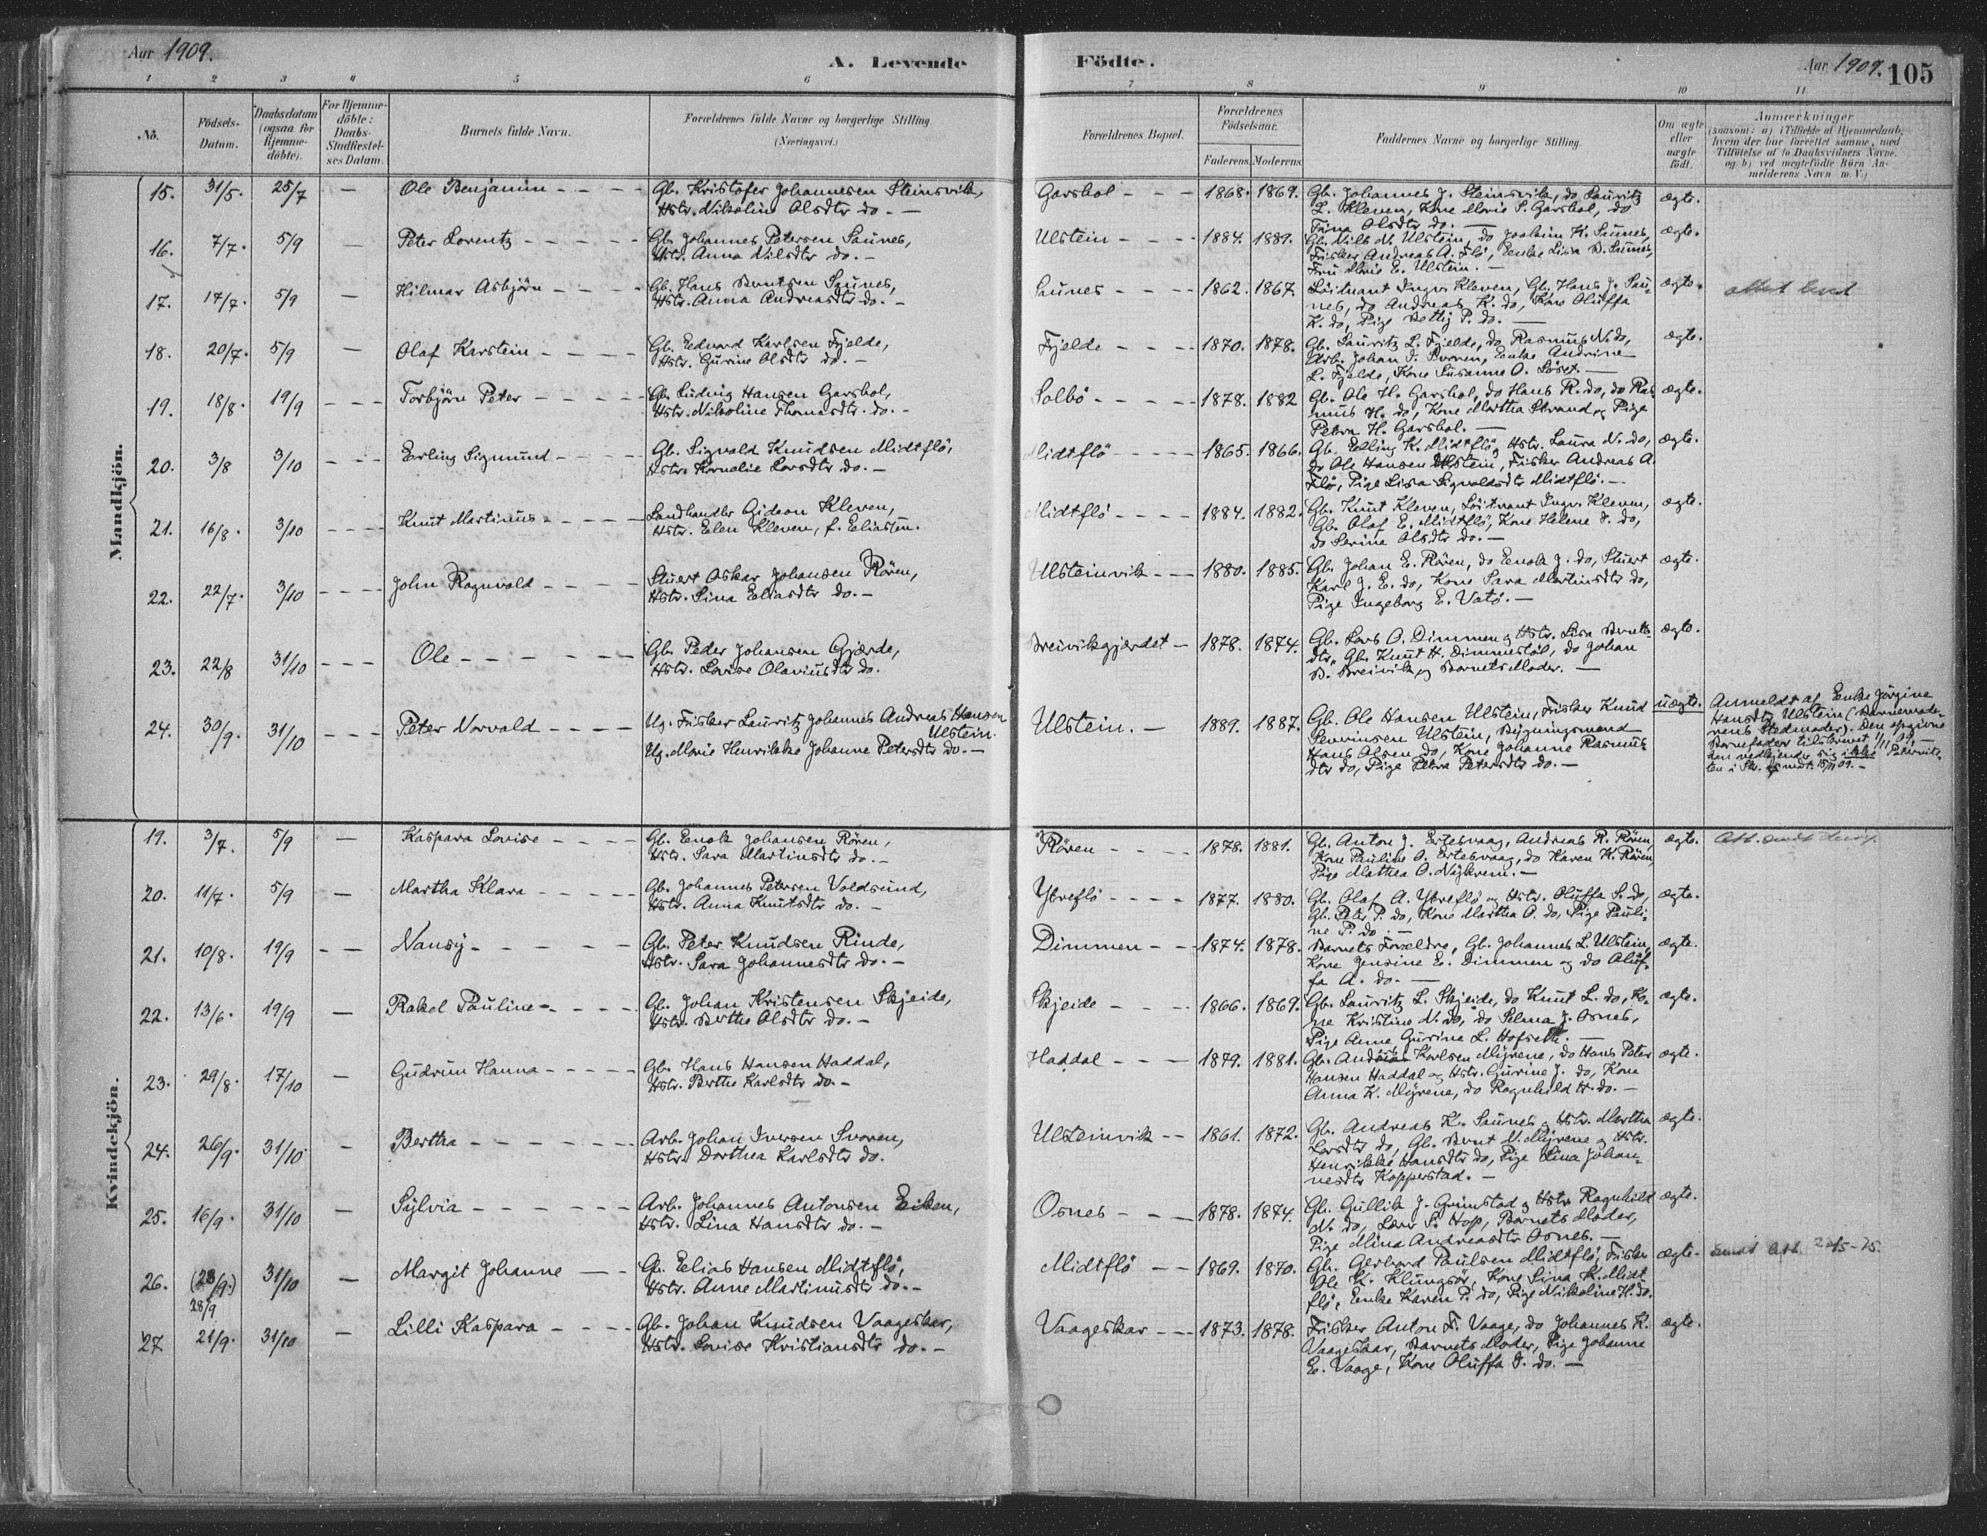 Aar 1909.
A. Levende
Födte.
Aar 1909. 105
1 2 3 4 5 6 7 8 9 10 11
No.
Födsels-
Datum.
Daabsdatum
(ogsaa for
Hjemme-
döbte).
For Hjemme-
döbte:
Daabs-
Stadfæstel-
ses Datum.
Barnets fulde Navn.
Forældrenes fulde Navne og borgerlige Stilling
(Næringsvei.)
Forældrenes Bopæl.
Forældrenes
Födselsaar.
Faderens. Moderens.
Faddernes Navne og borgerlige Stilling.
Om ægte
eller
uægte
födt.
Anmærkninger
(saasom: a) i Tilfælde af Hjemmedaab,
hvem der har forrettet samme, med
Tilföielse af to Daabsvidners Navne.
og b) ved uægtefödte Börn An-
melderens Navn m. V.)
Mandkjön.
15. 31/5. 25/7 — Ole Benjamin
Gb. Kristofer Johannesen Steinsvik,
Hstr. Nikoline Olsdtr do. —
Garshol — 1868. 1869.
Gb. Johannes J. Steinsvik, do Lauritz
L. Kleven, Kone Marie S. Garshol, do
Trina Olsdtr do. —
ægte.
16. 7/7. 5/9 — Peter Lorentz
Gb. Johannes Petersen Saunes,
Hstr. Anna Nilsdtr do. —
Ulstein — 1884. 1889.
Gb. Nils N. Ulstein, do Joakim H. Saunes,
Fisker Andreas A. Flö, Enke Lisa B. Saunes,
Fru Marie E. Ulstein. —
ægte.
17. 14/7. 5/9 — Hilmar Asbjörn
Gb. Hans Berntsen Saunes,
Hstr. Anna Andreasdtr do. —
Saunes — 1862. 1867.
Löitnant Ingv. Kleven, Gb. Hans J. Sau-
nes, do Andreas K. do, Kone Oluffa
K. do, Pige Bothy P. do. —
ægte.
18. 20/7. 5/9 — Olaf Karstein
Gb. Edvard Karlsen Fjelde,
Hstr. Gurine Olsdtr do. —
Fjelde — 1870. 1878.
Gb. Lauritz L. Fjelde, do Rasmus N. do,
Arb. Johan I. Svoren, Enke Andrine
L. Fjelde, Kone Susanne O. Löset. —
ægte.
19. 18/8. 19/9 — Torbjörn Peter
Gb. Ludvig Hansen Garshol,
Hstr. Nikoline Thomasdtr. do. —
Solbö — 1878. 1882
Gb. Ole H. Garshol, do Hans R. do, do Ras
mus H. do, Kone Martha Strand og Pige
Petra H. Garshol. —
ægte.
20. 3/8 3/10 — Erling Sigmund
Gb. Sigvald Knudsen Midtflö,
Hstr. Kornelie Larsdtr do. —
Midtflö — 1865. 1866.
Gb. Elling K. Midtflö, Hstr. Laura N. do,
Gb Ole Hansen Ulstein, Fisker Andreas A.
Flö, Pige Lisa Sigvaldsdtr Midtflö. —
ægte.
21. 16/8. 3/10 — Knut Martinus
Landhandler Gideon Kleven,
Hstr. Elen Kleven, f. Eliassen.
Midtflö — 1884. 1882.
Gb. Knut Kleven, Löitnant Ingv. Kleven,
Gb. Olaf E. Midtflö, Kone Helene I. do,
do Serine Olsdtr do. —
ægte.
22. 22/7. 3/10 — John Ragnvald
Stuert Oskar Johansen Rören,
Hstr. Sina Eliasdtr do. —
Ulsteinvik — 1880. 1885.
Gb. Johan E. Rören, do Enok J. do, Stuert
Karl J. E. do, Kone Sara Martinsdtr do,
Pige Ingeborg E. Vatö. —
ægte.
23. 22/8 31/10 — Ole
Gb. Peder Johansen Gjærde,
Hstr. Lovise Olaviusdtr do.
Breivikgjærdet — 1878. 1874.
Gb. Lars O. Dimmen og Hstr. Lisa Bernts
dtr, Gb. Knut H. Dimmestöl, do Johan
B. Breivik og Barnets Moder. —
ægte.
24. 30/9. 31/10 — Peter Norvald
Ug. Fisker Lauritz Johannes Andreas Hansen
Ulstein.
Ug. Marie Henrikke Johanne Petersdtr do. —
Ulstein. — 1889. 1887.
Gb. Ole Hansen Ulstein, Fisker Knud
Severinsen Ulstein, Bygningsmand
Hans Olsen do, Kone Johanne Rasmus
dtr do, Pige Petra Petersdtr do. —
uægte.
Anmeldt af Enke Jörgine
Hansdtr Ulstein (Barnemode-
rens Stedmoder). Den opgivne
Barnefader tilskrevet 1/11 09. —
Han vedkjender sig ikke Paterni-
ten i Skr. 15/11 09. —
Kvindekjön.
19. 3/7. 5/9 — Kaspara Lovise
Gb. Enok Johansen Rören,
Hstr. Sara Martinsdtr do. —
Rören — 1878. 1881.
Gb. Anton J. Ertesvaag, Andreas R. Rören,
Kone Pauline O. Ertesvaag, do Karen K. Rören,
Pige Mathea O. Nykrem. —
ægte.
20. 11/7. 5/9 — Martha Klara
Gb. Johannes Petersen Voldsund,
Hstr. Anna Knutsdtr do. —
Ytreflö — 1877. 1880.
Gb. Olaf A. Ytreflö og Hstr. Oluffa S. do,
Gb. Peter P. do, Kone Martha O. do, Pige Pauli-
ne P. do. —
ægte.
21. 10/8. 19/9 — Nansy
Gb. Peter Knudsen Rinde,
Hstr. Sara Johannesdtr do. —
Dimmen — 1874. 1878.
Barnets Forældre, Gb. Johannes L. Ulstein,
Kone Jensine E. Dimmen og do Oluf-
fa A. do. —
ægte.
22. 13/6. 19/9 — Rakel Pauline
Gb. Johan Kristensen Skjeide,
Hstr. Berthe Olsdtr do. —
Skjeide — 1866. 1869.
Gb. Lauritz L. Skjeide, do Knut L. do, Ko-
ne Kristine N. do, do Selma J. Osnes,
Pige Anne Gurine L. Hofseth. —
ægte.
23. 29/8. 17/10 — Gudrun Hanna
Gb. Hans Hansen Haddal,
Hstr. Berthe Karlsdtr do. —
Haddal — 1879. 1881.
Gb. Andreas Karlsen Myrene, do Hans Peter
Hansen Haddal og Hstr. Gurine J. do, Kone
Anna K. Myrene, do Ragnhild H. do. —
ægte.
24. 26/9. 31/10 — Bertha
Arb. Johan Iversen Svoren,
Hstr. Dorthea Karlsdtr do.
Ulsteinvik — 1861. 1872.
Gb. Andreas K. Saunes og Hstr. Martha
Larsdtr do, Gb. Bernt N. Myrene og Hstr.
Henrikke Hansdtr do, Pige Lina Johan-
nesdtr Kopperstad. —
ægte.
25. 16/9. 31/10 — Sylvia
Arb. Johannes Antonsen Eiken,
Hstr. Lina Hansdtr do. —
Osnes — 1878. 1874.
Gb. Gullik J. Grimstad og Hstr. Ragnhild
N. do, Lærer S. Hop, Barnets Moder,
Pige Mina Andreasdtr Osnes. —
ægte.
26. (28/9.) 28/9 31/10 — Margit Johanne
Gb. Elias Hansen Midtflö,
Hstr. Anne Martinusdtr do. —
Midtflö — 1869. 1870.
Gb. Gerhard Paulsen Midtflö, Fisker
Ole K. Klungsör, Kone Sina K. Midt
flö, Enke Karen P. do, Pige Nikoline H. do.
ægte.
27 21/9. 31/10 — Lilli Kaspara
Gb. Johan Knudsen Vaageskar,
Hstr. Lovise Kristiansdtr do. —
Vaageskar — 1873. 1878.
Fisker Anton F. Vaage, do Johannes K.
Vaageskar, Barnets Moder, Pige Johanne
E. Vaage, Kone Oluffa I. do. —
ægte.